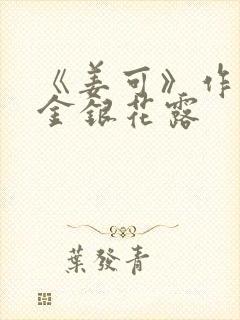 《姜可》作
金銀花露
葉發青